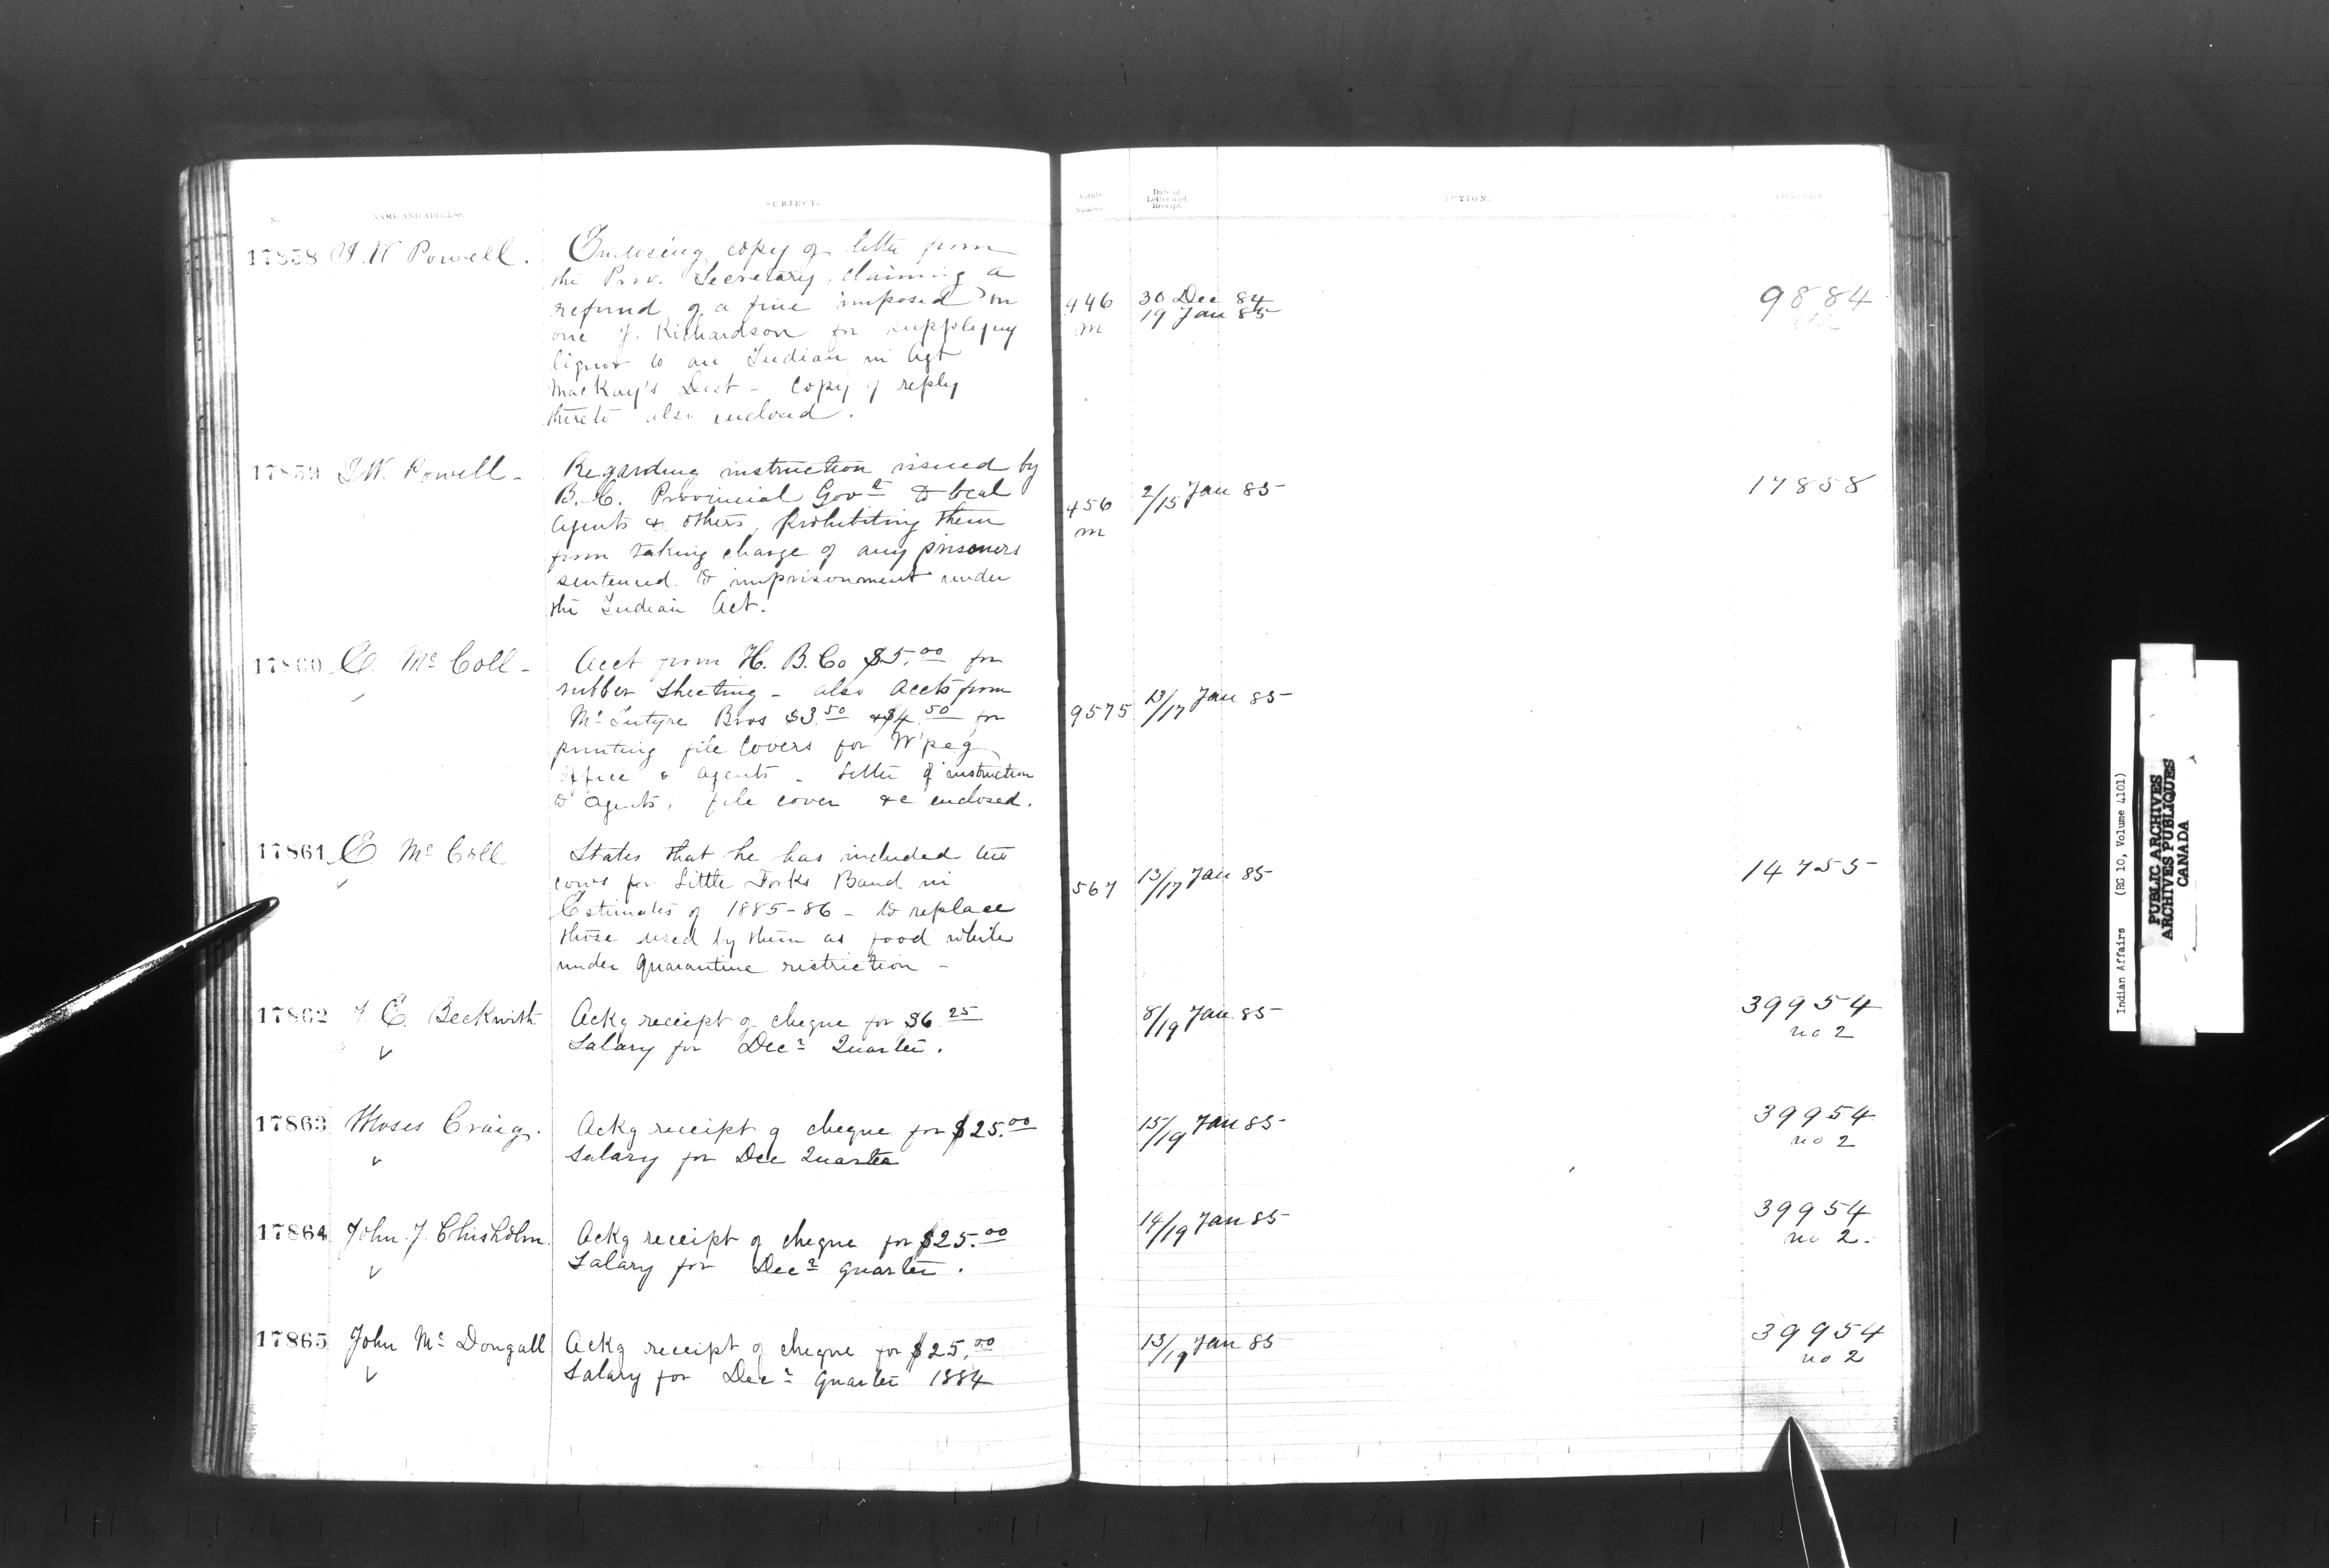 No.
NAME AND ADDRESS.
SUBJECT.
17858 I. W Powell.
Enclosing copy of lette from
the Prov. Secretary, claiming a
refund of a fine imposed on
one J. Richardson for supplying
liquor to an Indian in Agt
MacKay's Dist - Copy of reply
thereto also enclosed.
17859 I. W. Powell -
Regarding instruction issued by
B. C. Provincial Govt to local
Agents & others, prohibiting them
from taking charge of any prisoners
sentenced to imprisonment under
the Indian Act.
17860 E. Mc Coll -
Acct from H. B. Co $5.00 for
rubber sheeting - also Accts from
Mc Intyre Bros $3.50 & $4.50 for
printing file covers for W'peg
Office & agents - Letter of instruction
to agents, file cover &c enclosed.
17861 E Mc Coll
States that he has included two
cows for Little Forks Band in
Estimates of 1885-86 - to replace
those used by them as food while
under quarantine restriction -
17862 J. E. Beckwith
Ackg receipt of cheque for $6.25
Salary for Decr Quarter.
17863 Moses Craig.
Ackg receipt of cheque for $25.00
Salary for Dec Quarter
17864 John J. Chisholm
Ackg receipt of cheque for $25.00
Salary for Decr quarter.
17865 John Mc Dougall
Ackg receipt of cheque for $25.00
Salary for Decr quarter 1884
Agents
Number.
Date of
Letter and
Receipt.
ACTION.
446
m
30 Dec 84
19 Jan 85
9884
456
m
2/15 Jan 85
17858
9575
13/17 Jan 85
567
13/17 Jan 85
14755
8/19 Jan 85
39954
no 2
15/19 Jan 85
39954
no 2
14/19 Jan 85
39954
no 2.
13/19 Jan 85
39954
no 2
Indian Affairs (RG 10, Volume 4101)
PUBLIC ARCHIVES
ARCHIVES PUBLIQUES
CANADA